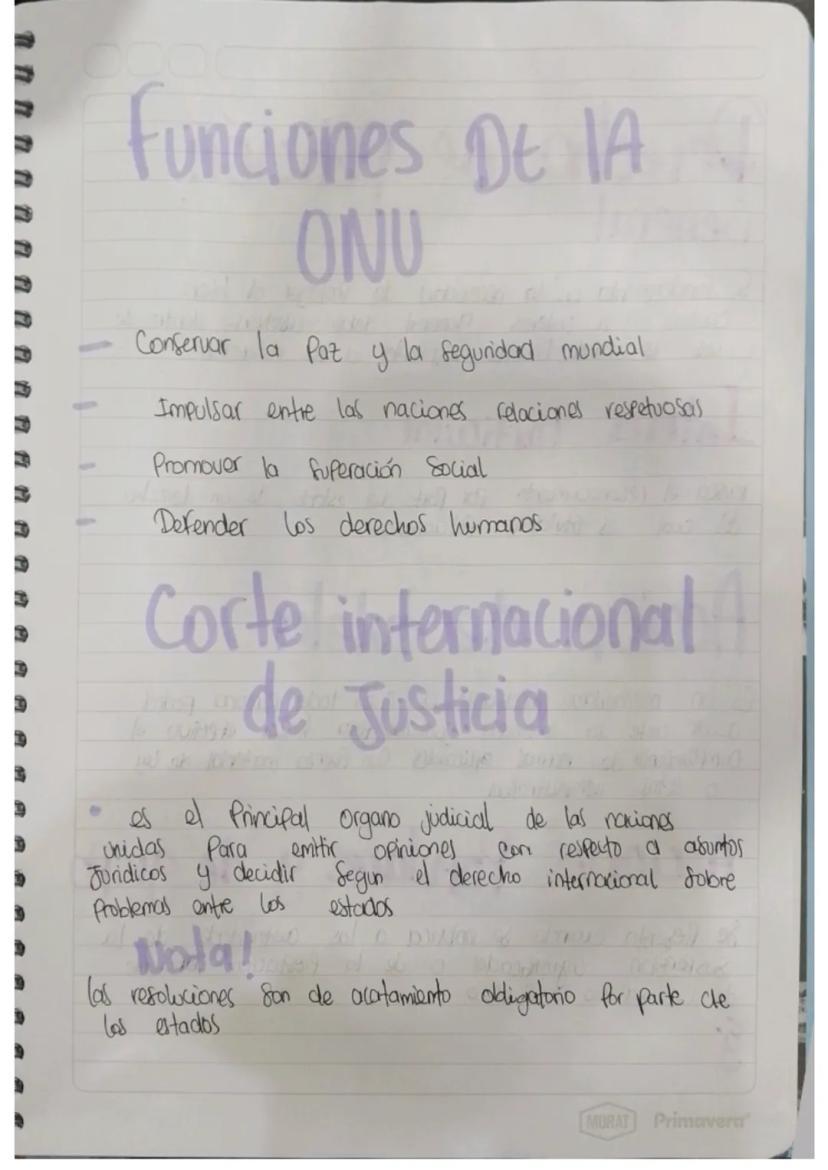 Funciones DE lA
ONU
- Conservar la Paz y la seguridad mundial
- Impulsar entre las naciones relaciones respetuosas
- Promover la Superación Social
- Defender los derechos humanos
Corte internacional
de Justicia
• es el Principal organo judicial de las naciones
unidas Para emitir opiniones con respecto a asuntos
Juridicos y decidir Segun el derecho internacional Sobre
Problemas entre los estados
Nota!
las resoluciones son de acatamiento obligatorio Por parte de
los estados
MORAT Primavera